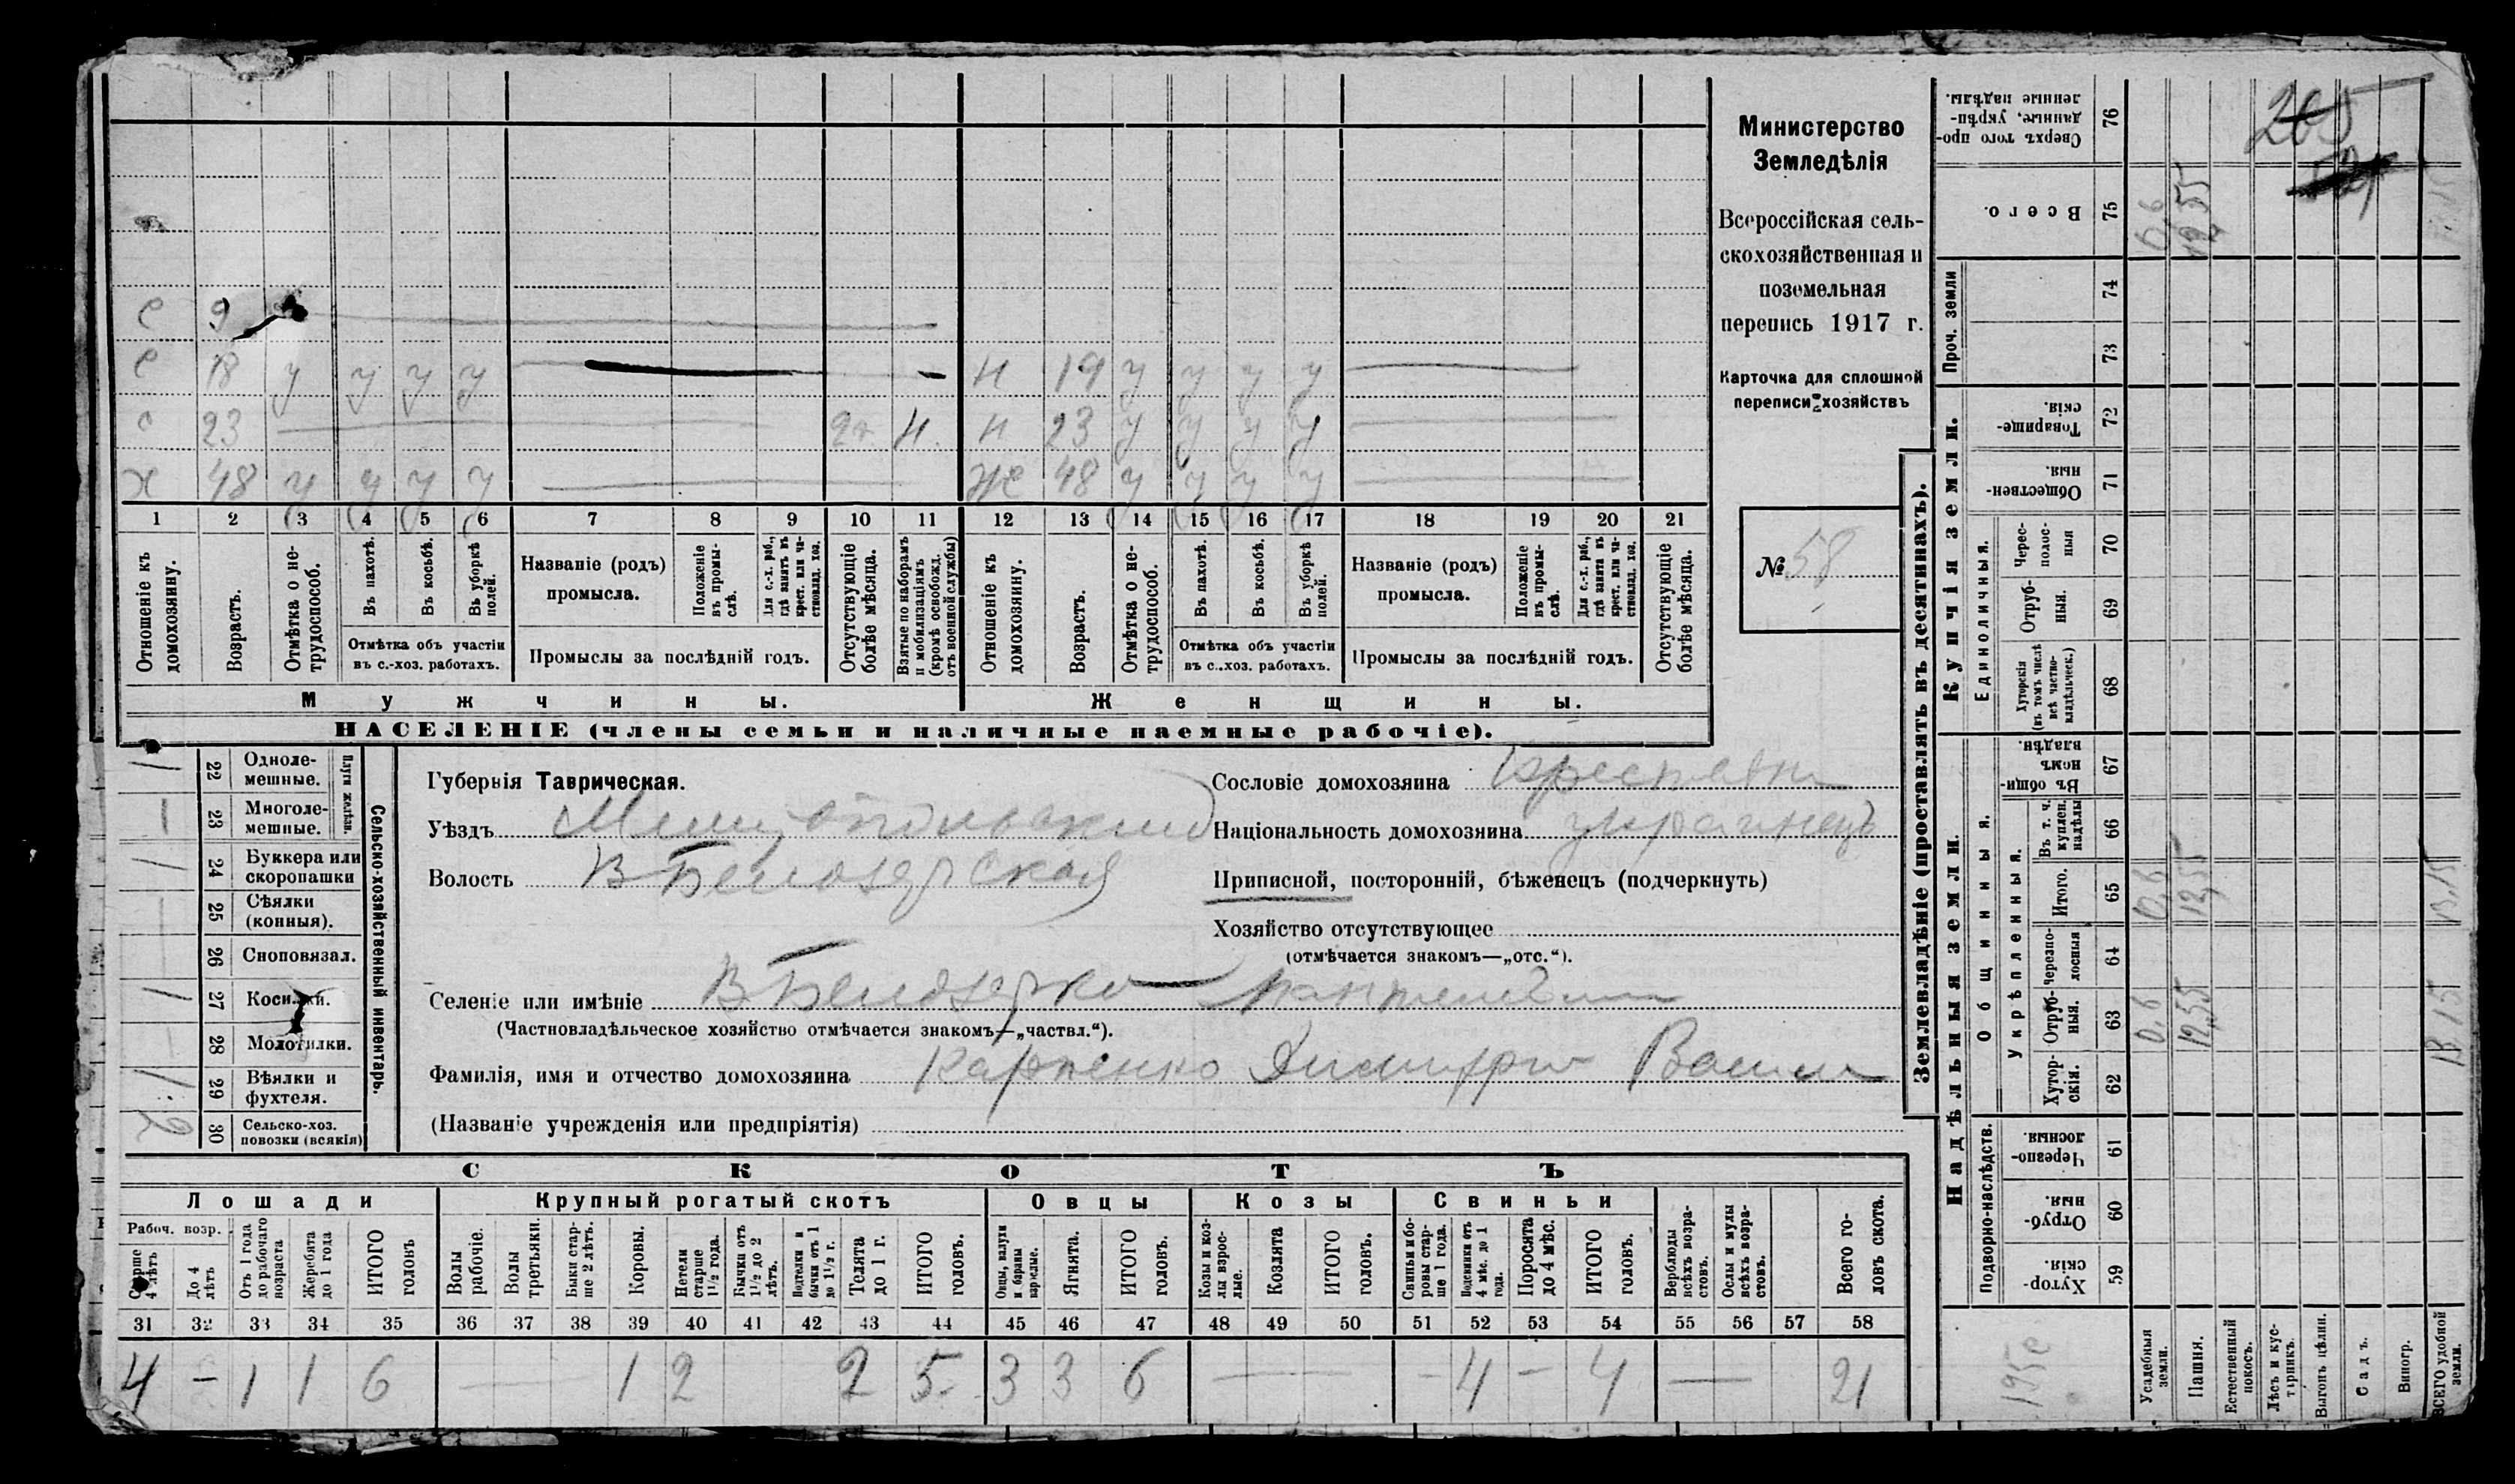 Министерство
Земледѣлія
Всероссійская сель-
скохозяйственная и
поземельная
перепись 1917 г.
Карточка для сплошной
переписи хозяйствъ
№ 58
265
с 9
с 18 у у у у — н 19 у у у у —
с 23 — 2г. н. н 23 у у у у —
х 48 у у у у — Же 48 у у у у —
1 2 3 4 5 6 7 8 9 10 11 12 13 14 15 16 17 18 19 20 21
Отношеніе къ домохозяину.
Возрастъ.
Отмѣтка о не-трудоспособ.
Въ пахотѣ.
Въ косьбѣ.
Въ уборкѣ полей.
Отмѣтка объ участіи
въ с.-хоз. работахъ.
Названіе (родъ)
промысла.
Положеніе въ промы-слѣ.
Для с.-х. раб., гдѣ занятъ въ крест. или ча-стновлад. хоз.
Промыслы за послѣдній годъ.
Отсутствующіе болѣе мѣсяца.
Взятые по наборамъ и мобилизаціямъ (кромѣ освобожд. отъ военной службы)
Отношеніе къ домохозяину.
Возрастъ.
Отмѣтка о не-трудоспособ.
Въ пахотѣ.
Въ косьбѣ.
Въ уборкѣ полей.
Отмѣтка объ участіи
въ с.-хоз. работахъ.
Названіе (родъ)
промысла.
Положеніе въ промы-слѣ.
Для с.-х. раб., гдѣ занята въ крест. или ча-стновлад. хоз.
Промыслы за послѣдній годъ.
Отсутствующіе болѣе мѣсяца.
Мужчины. Женщины.
НАСЕЛЕНІЕ (члены семьи и наличные наемные рабочіе).
1 22 Одноле-мешные.
— 23 Многоле-мешные.
Плуги желѣзн.
1 24 Буккера или скоропашки
— 25 Сѣялки (конныя).
— 26 Сноповязал.
1 27 Косилки.
— 28 Молотилки.
1 29 Вѣялки и фухтеля.
2 30 Сельско-хоз. повозки (всякія)
Сельско-хозяйственный инвентарь.
Губернія Таврическая.
Уѣздъ Мелитопольский
Волость В Белозерская
Селеніе или имѣніе В Белозерка
(Частновладѣльческое хозяйство отмѣчается знакомъ—„частвл.“).
Фамилія, имя и отчество домохозяина Карпенко Димитрий Васил
(Названіе учрежденія или предпріятія)
Сословіе домохозяина крестьянин
Національность домохозяина украинецъ
Приписной, посторонній, бѣженецъ (подчеркнуть)
Хозяйство отсутствующее
(отмѣчается знакомъ—„отс.“).
СКОТЪ
Лошади Крупный рогатый скотъ Овцы Козы Свиньи
Рабоч. возр.
Старше 4 лѣтъ
До 4 лѣтъ
Отъ 1 года до рабочаго возраста
Жеребята до 1 года
ИТОГО головъ
Волы рабочіе.
Волы третьяки.
Быки стар-ше 2 лѣтъ.
Коровы.
Нетели старше 1½ года.
Бычки отъ 1½ до 2 лѣтъ.
Подтелки и бычки отъ 1 до 1½ г.
Телята до 1 г.
ИТОГО головъ.
Овцы, валухи и бараны взрослые.
Ягнята.
ИТОГО головъ.
Козы и коз-лы взрос-лые.
Козлята
ИТОГО головъ.
Свиньи и бо-ровы стар-ше 1 года.
Подсвинки отъ 4 мѣс. до 1 года.
Поросята до 4 мѣс.
ИТОГО головъ.
Верблюды всѣхъ возра-стовъ.
Ослы и мулы всѣхъ возра-стовъ.
Всего го-ловъ скота.
31 32 33 34 35 36 37 38 39 40 41 42 43 44 45 46 47 48 49 50 51 52 53 54 55 56 57 58
4 — 1 1 6 — 1 2 2 5 3 3 6 — — 4 — 4 — 21
Землевладѣніе (проставлять въ десятинахъ).
Надѣльныя земли.
Купчія земли.
Проч. земли
Подворно-наслѣдств.
Общинныя.
Укрѣпленныя.
Единоличныя.
Хутор-скія. 59
Отруб-ныя. 60
Черезпо-лосныя. 61
Хутор-скія. 62
Отруб-ныя. 63
Черезпо-лосныя 64
Итого. 65
Въ т. ч. куплен. надѣлы 66
Въ общин-номъ владѣн. 67
Хуторскія (въ томъ числѣ всѣ частно-владѣльческ.) 68
Отруб-ныя. 69
Черес-полос-ныя 70
Обществен-ныя. 71
Товарище-скія. 72
73
74
Всего. 75
Сверхъ того про-данные, укрѣп-ленные надѣлы. 76
Усадебныя земли. 0,6 0,6 0,6
Пашня. 12,55 12,55 12,55
Естественный покосъ.
Лѣсъ и кус-тарникъ.
Выгонъ цѣлин.
Садъ.
Виногр.
ВСЕГО удобной земли. 13,15 13,15 13,15